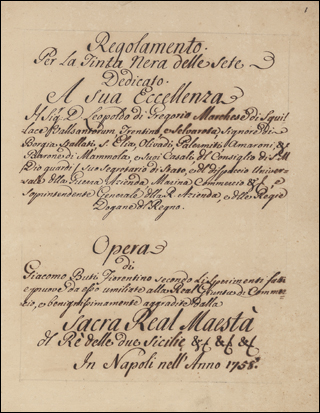 1
Regolamento.
Per La Tinta Nera delle Sete
Dedicato.
A Sua Eccellenza
Il Sig. D. Leopoldo di Gregorio Marchese di Squil
lace, Trentino, e Selvareta, Signore di
Borgia, Stallati, S. Elia, Olivadi, Palermiti, Amaroni, &
Padrone di Mammola, e suoi Casali, del Consiglio di S. M.
Dio guardi, suo Segretario di Stato, e del dispaccio Univer-
sale della Guerra, Azienda, Marina, Commercio & e
Soprintendente Generale della R. Azienda, e delle Regie
Dogane del Regno.
Opera
di
Giacomo Buti Fiorentino secondo li sperimenti fat-
e pruove da esso umiliate alla Real Giunta di Comme-
cio, e benignissimamente aggradite dalla
Sacra Real Maestà
del Rè delle due Sicilie & & & &
In Napoli nell'Anno 1758.